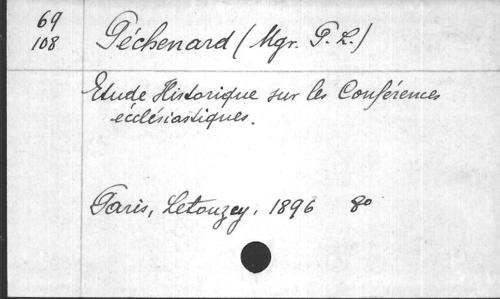 69
108
Péchenard (Mgr. P. L.)
Etude Historique sur les Conférences
ecclésiastiques.
Paris, Letouzey, 1896 8º